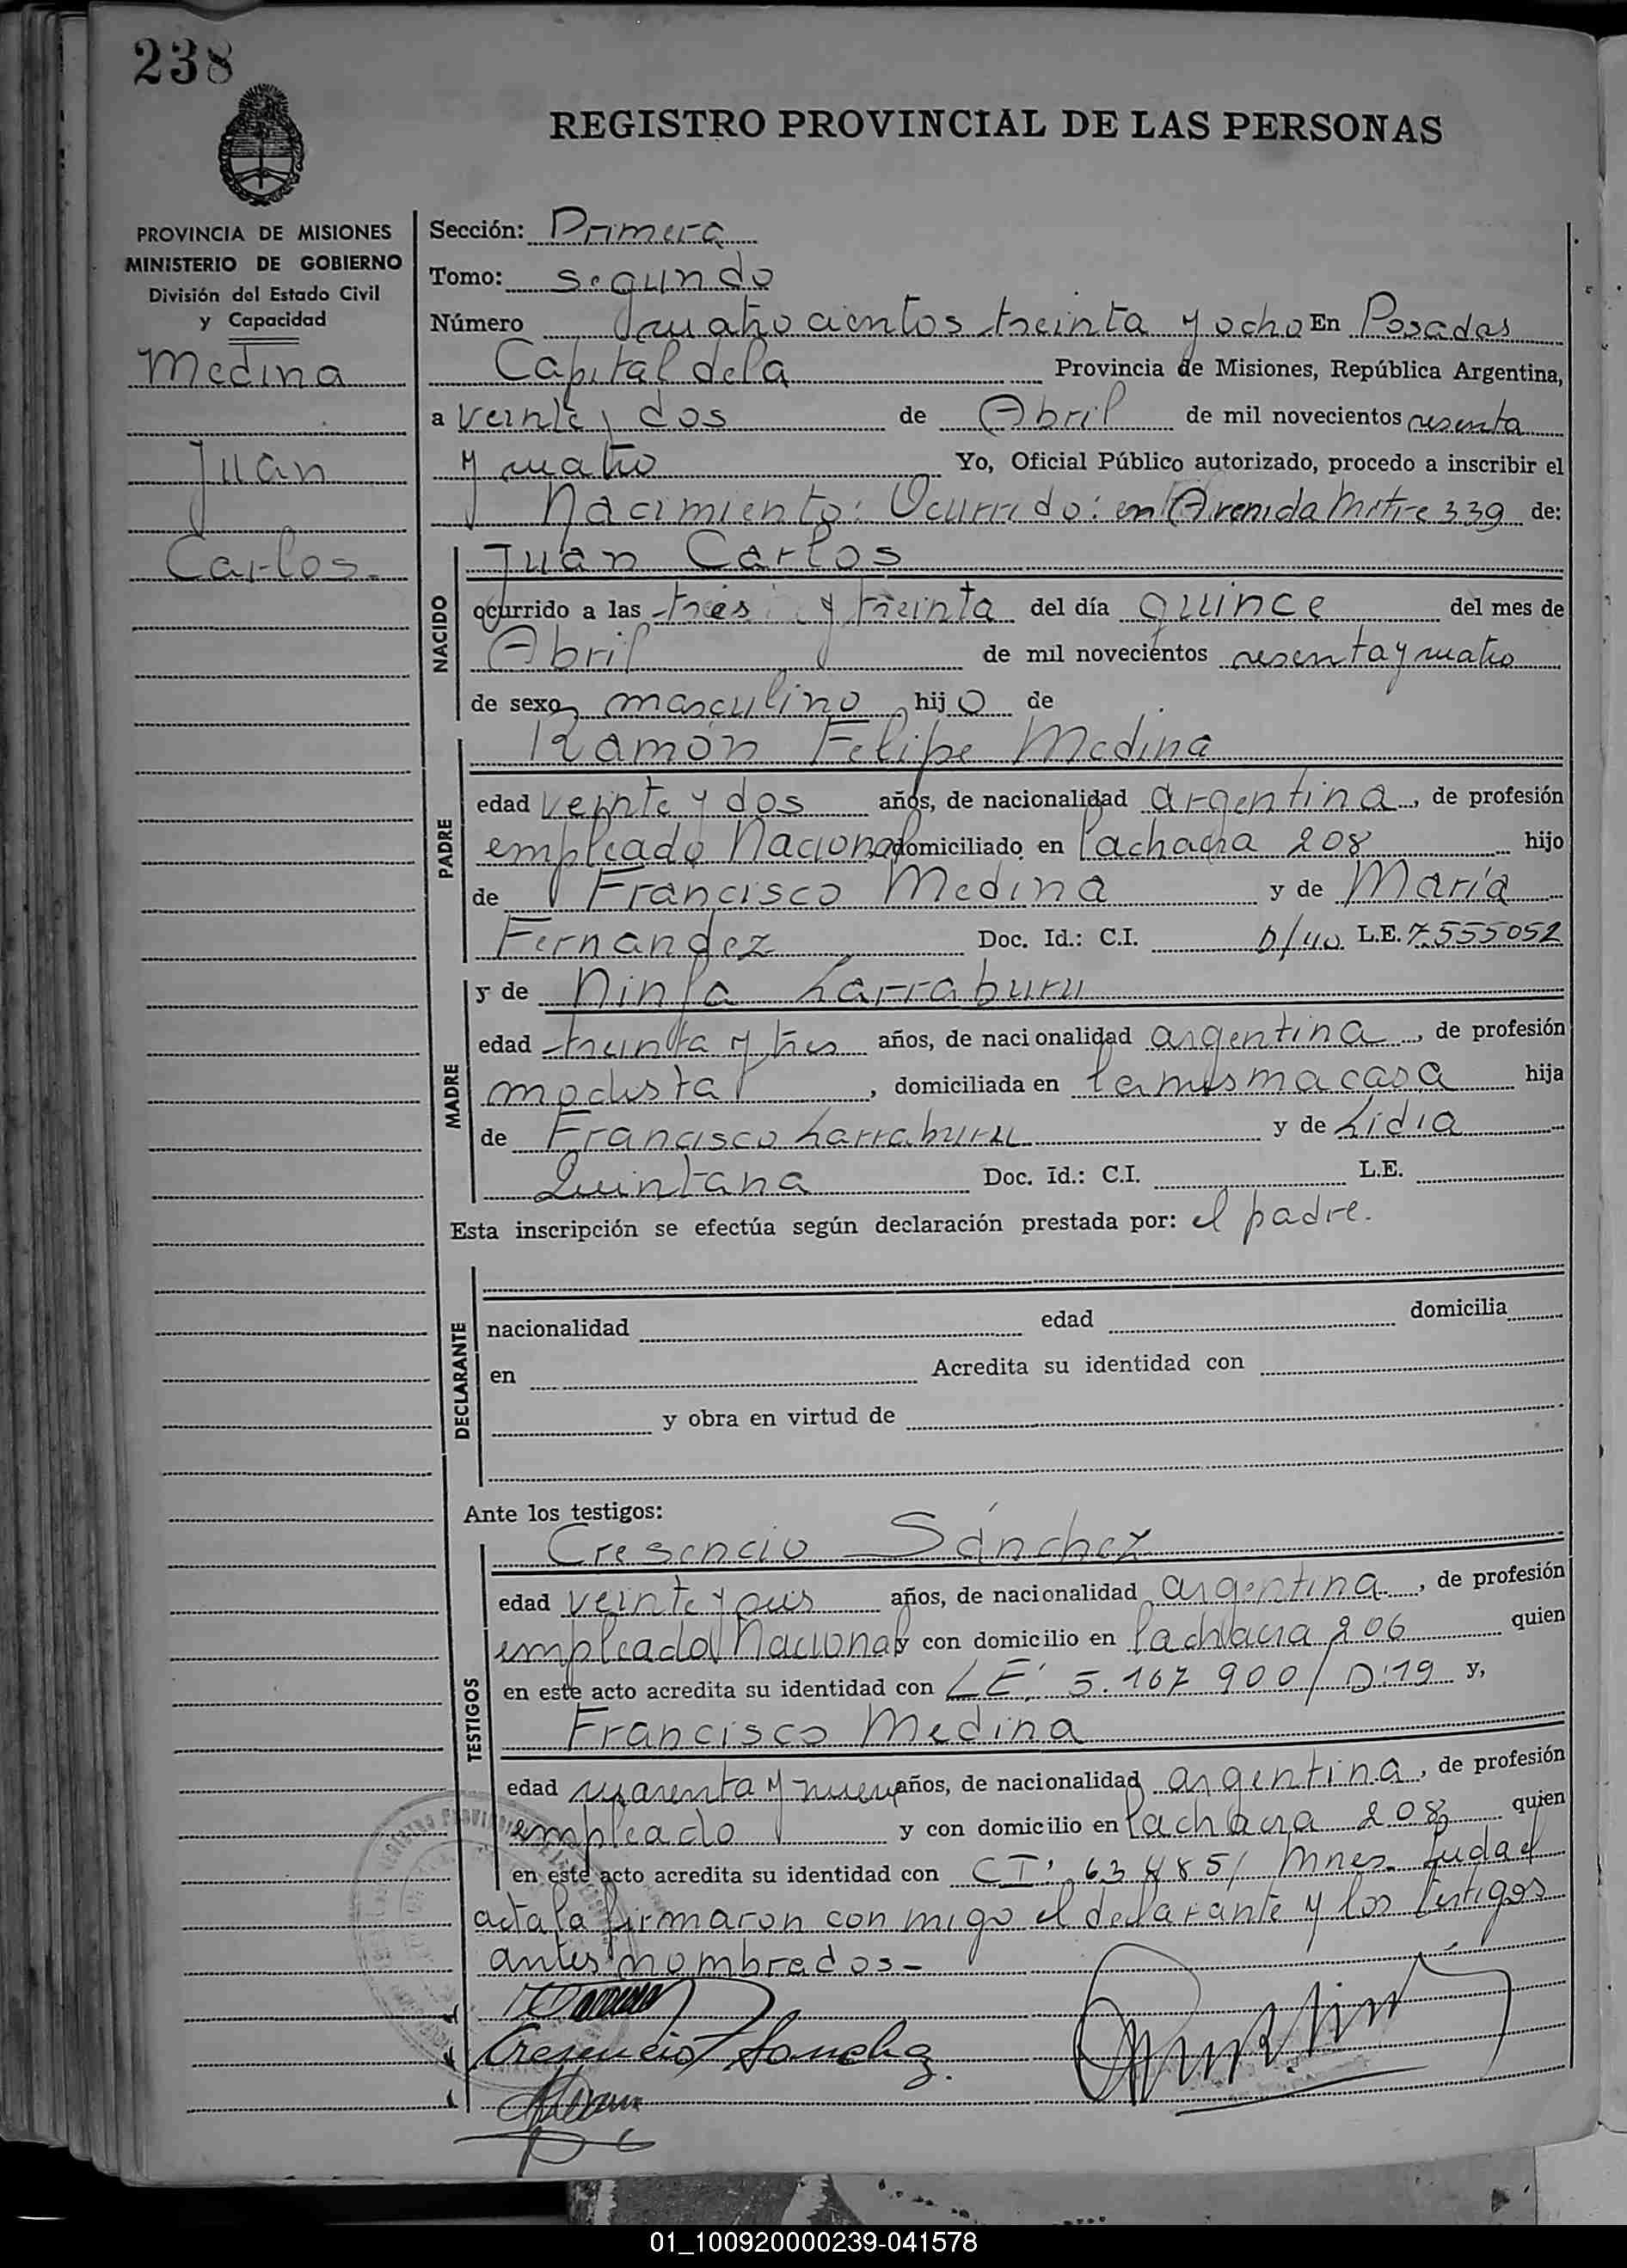 238
REGISTRO PROVINCIAL DE LAS PERSONAS
PROVINCIA DE MISIONES
MINISTERIO DE GOBIERNO
División del Estado Civil
y Capacidad
Medina
Juan
Carlos.-
Sección: Primera
Tomo: segundo
Número cuatro cientos treinta y ocho En Posadas
Capital de la Provincia de Misiones, República Argentina,
a veinte y dos de Abril de mil novecientos sesenta
y cuatro Yo, Oficial Público autorizado, procedo a inscribir el
Nacimiento: Ocurrido: en Avenida Mitre 339 de:
NACIDO
Juan Carlos
ocurrido a las tres y treinta del día quince del mes de
Abril de mil novecientos sesenta y cuatro
de sexo masculino hijo de
PADRE
Ramón Felipe Medina
edad veinte y dos años, de nacionalidad argentina, de profesión
empleado Nacional domiciliado en Lachacra 208 hijo
de Francisco Medina y de María
Fernandez Doc. Id.: C.I. D/40 L.E. 7.555052
MADRE
y de Ninfa Larraburu
edad treinta y tres años, de nacionalidad argentina, de profesión
modista, domiciliada en la misma casa hija
de Francisco Larraburu y de Lidia
Quintana Doc. Id.: C.I. L.E.
Esta inscripción se efectúa según declaración prestada por: el padre.
DECLARANTE
nacionalidad edad domicilia
en Acredita su identidad con
y obra en virtud de
Ante los testigos:
TESTIGOS
Cresencio Sánchez
edad veinte y seis años, de nacionalidad argentina, de profesión
empleado Nacional y con domicilio en Lachacra 206 quien
en este acto acredita su identidad con LE. 5.167 900/ D.19 y,
Francisco Medina
edad cuarenta y nueve años, de nacionalidad argentina, de profesión
empleado y con domicilio en Lachacra 208 quien
en este acto acredita su identidad con CI. Mnes.
acta la firmaron con migo el declarante y los testigos
antes nombrados.-
Cresencio Sanchez.
01_100920000239-041578